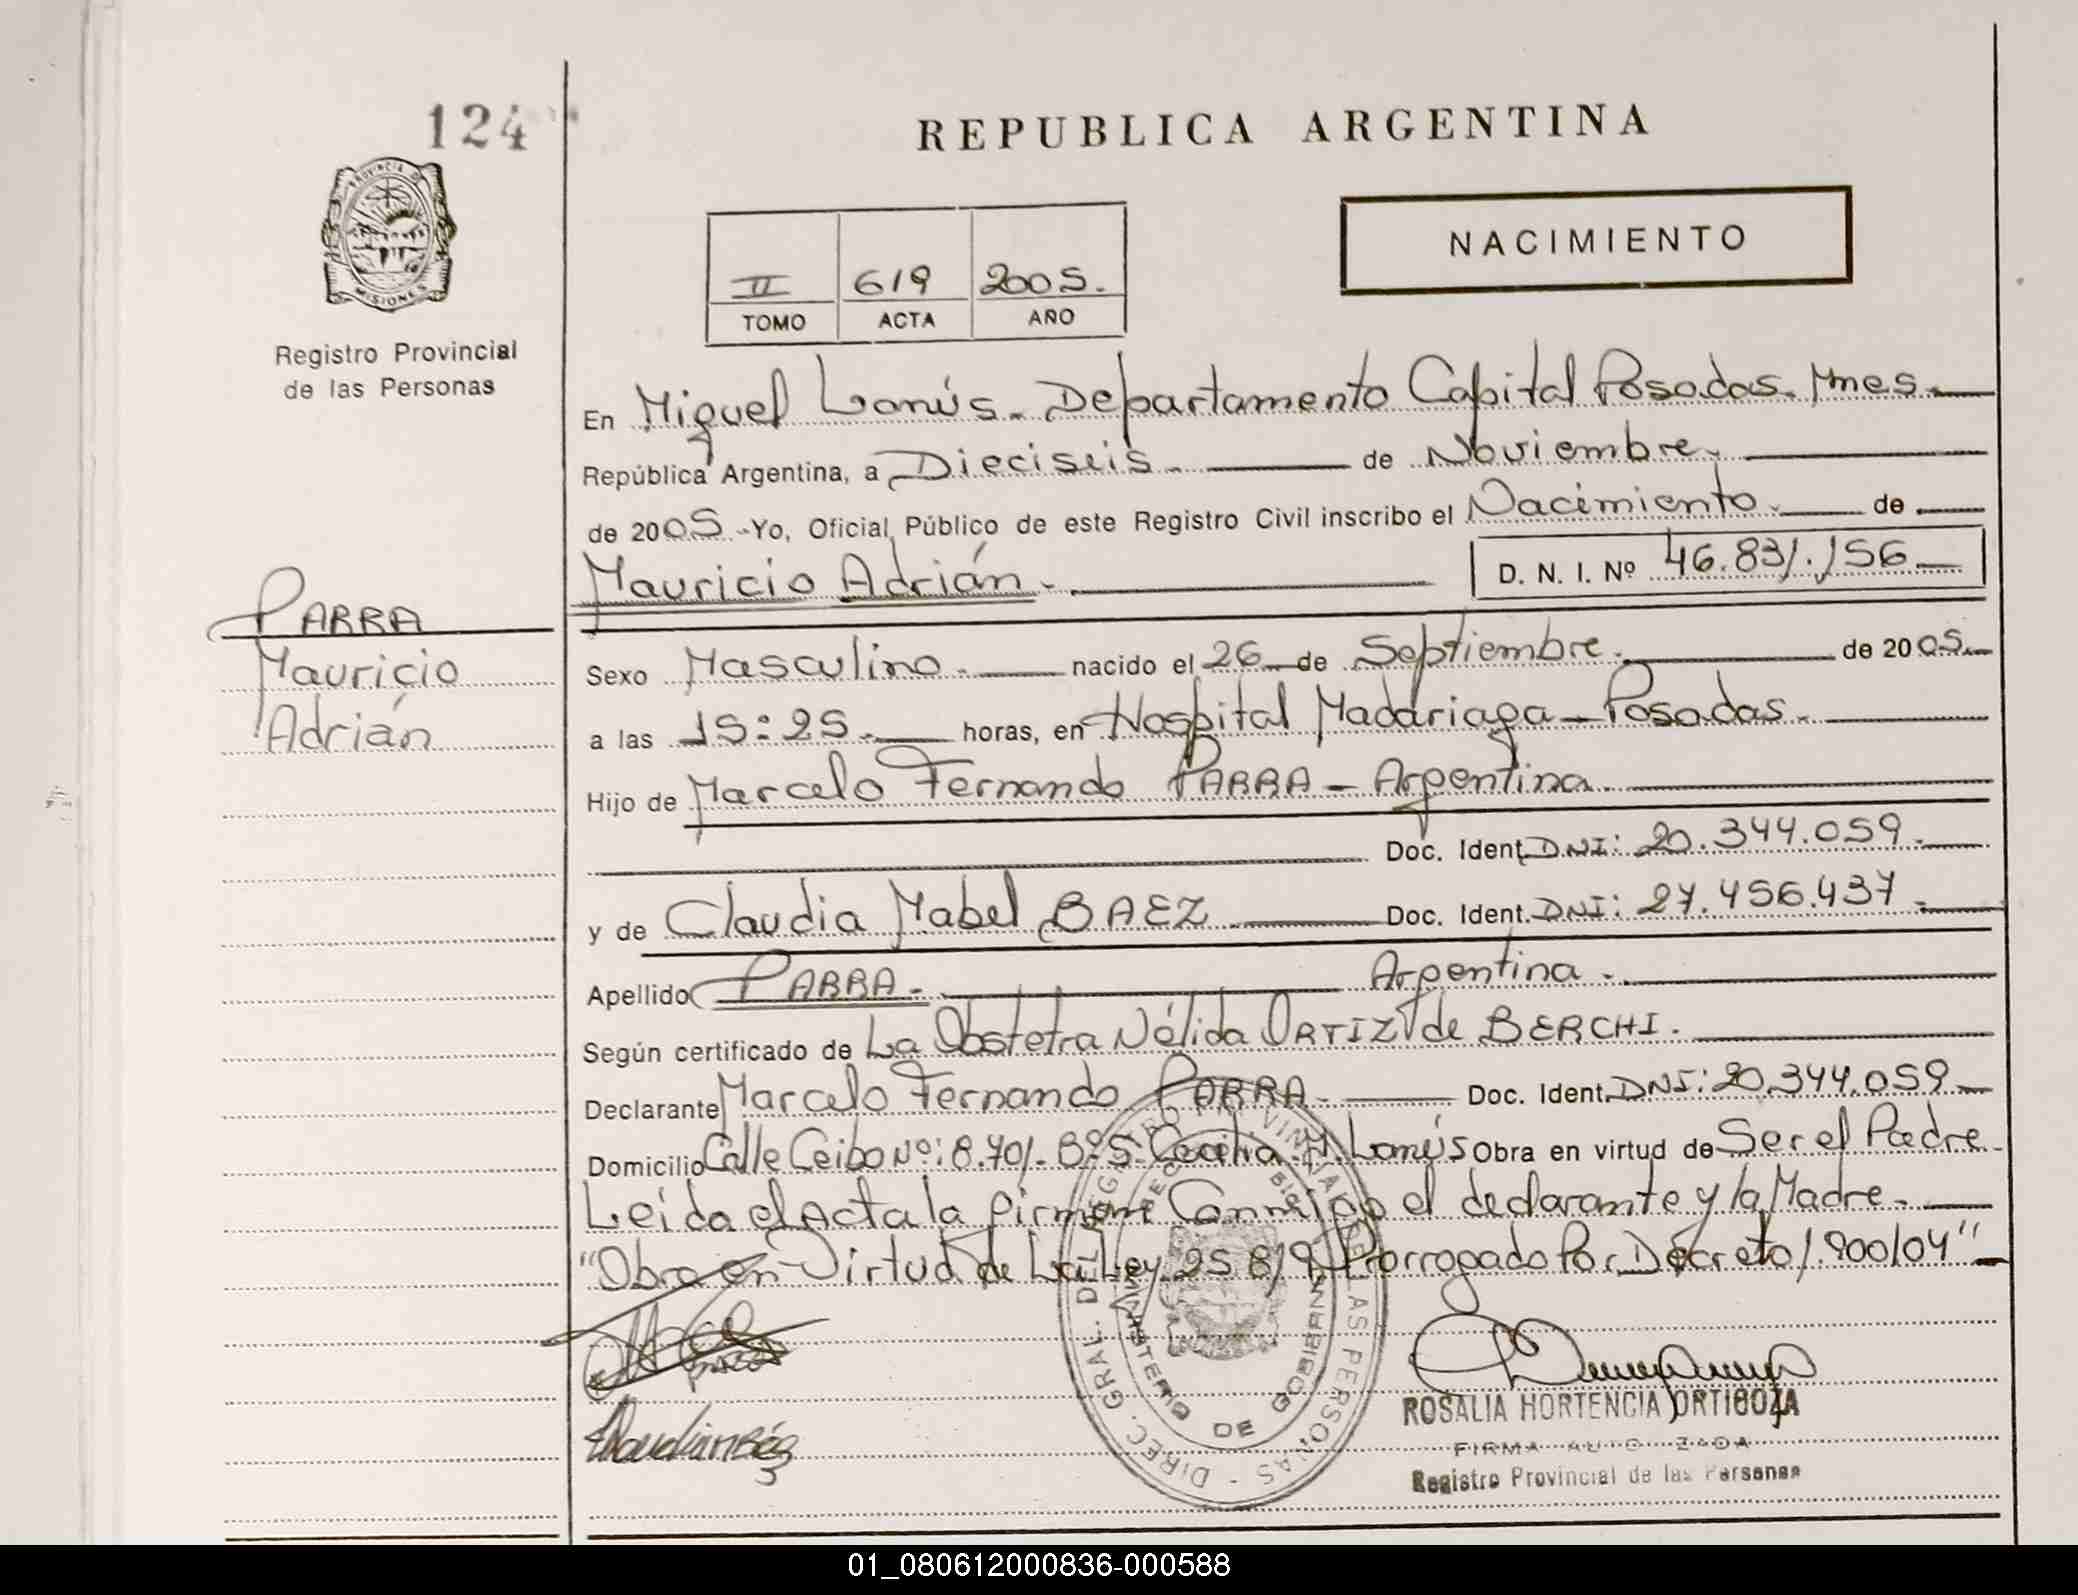 124
REPUBLICA ARGENTINA
PROVINCIA DE MISIONES
Registro Provincial
de las Personas
II 619 2005.
TOMO ACTA AÑO
NACIMIENTO
En Miguel Lanús. Departamento Capital Posadas. Mnes.
República Argentina, a Dieciseis. de Noviembre.
de 2005 - Yo, Oficial Público de este Registro Civil inscribo el Nacimiento. de
Mauricio Adrián. D. N. I. Nº 46.831.156
PARRA
Mauricio
Adrián
Sexo Masculino. nacido el 26 de Septiembre. de 2005.
a las 15:25. horas, en Hospital Madariaga - Posadas.
Hijo de Marcelo Fernando PARRA - Argentina.
Doc. Ident. DNI: 20.344.059.
y de Claudia Mabel BAEZ Doc. Ident. DNI: 27.456.437.
Apellido PARRA. Argentina.
Según certificado de La Obstetra Nélida ORTIZ de BERCHI.
Declarante Marcelo Fernando PARRA. Doc. Ident. DNI: 20.344.059.
Domicilio Calle Ceibo Nº: 8.701. Bº S. Cecilia. M. Lanús Obra en virtud de Ser el Padre.
Leída el Acta la firman Conmigo el declarante y la Madre.
"Obra en Virtud de La Ley 25.819 Prorrogado Por Decreto 1.900/04"
DIREC. GRAL. DEL REGISTRO PROVINCIAL DE LAS PERSONAS
MINISTERIO DE GOBIERNO
ROSALIA HORTENCIA ORTIGOZA
FIRMA AUTORIZADA
Registro Provincial de las Personas
01_080612000836-000588